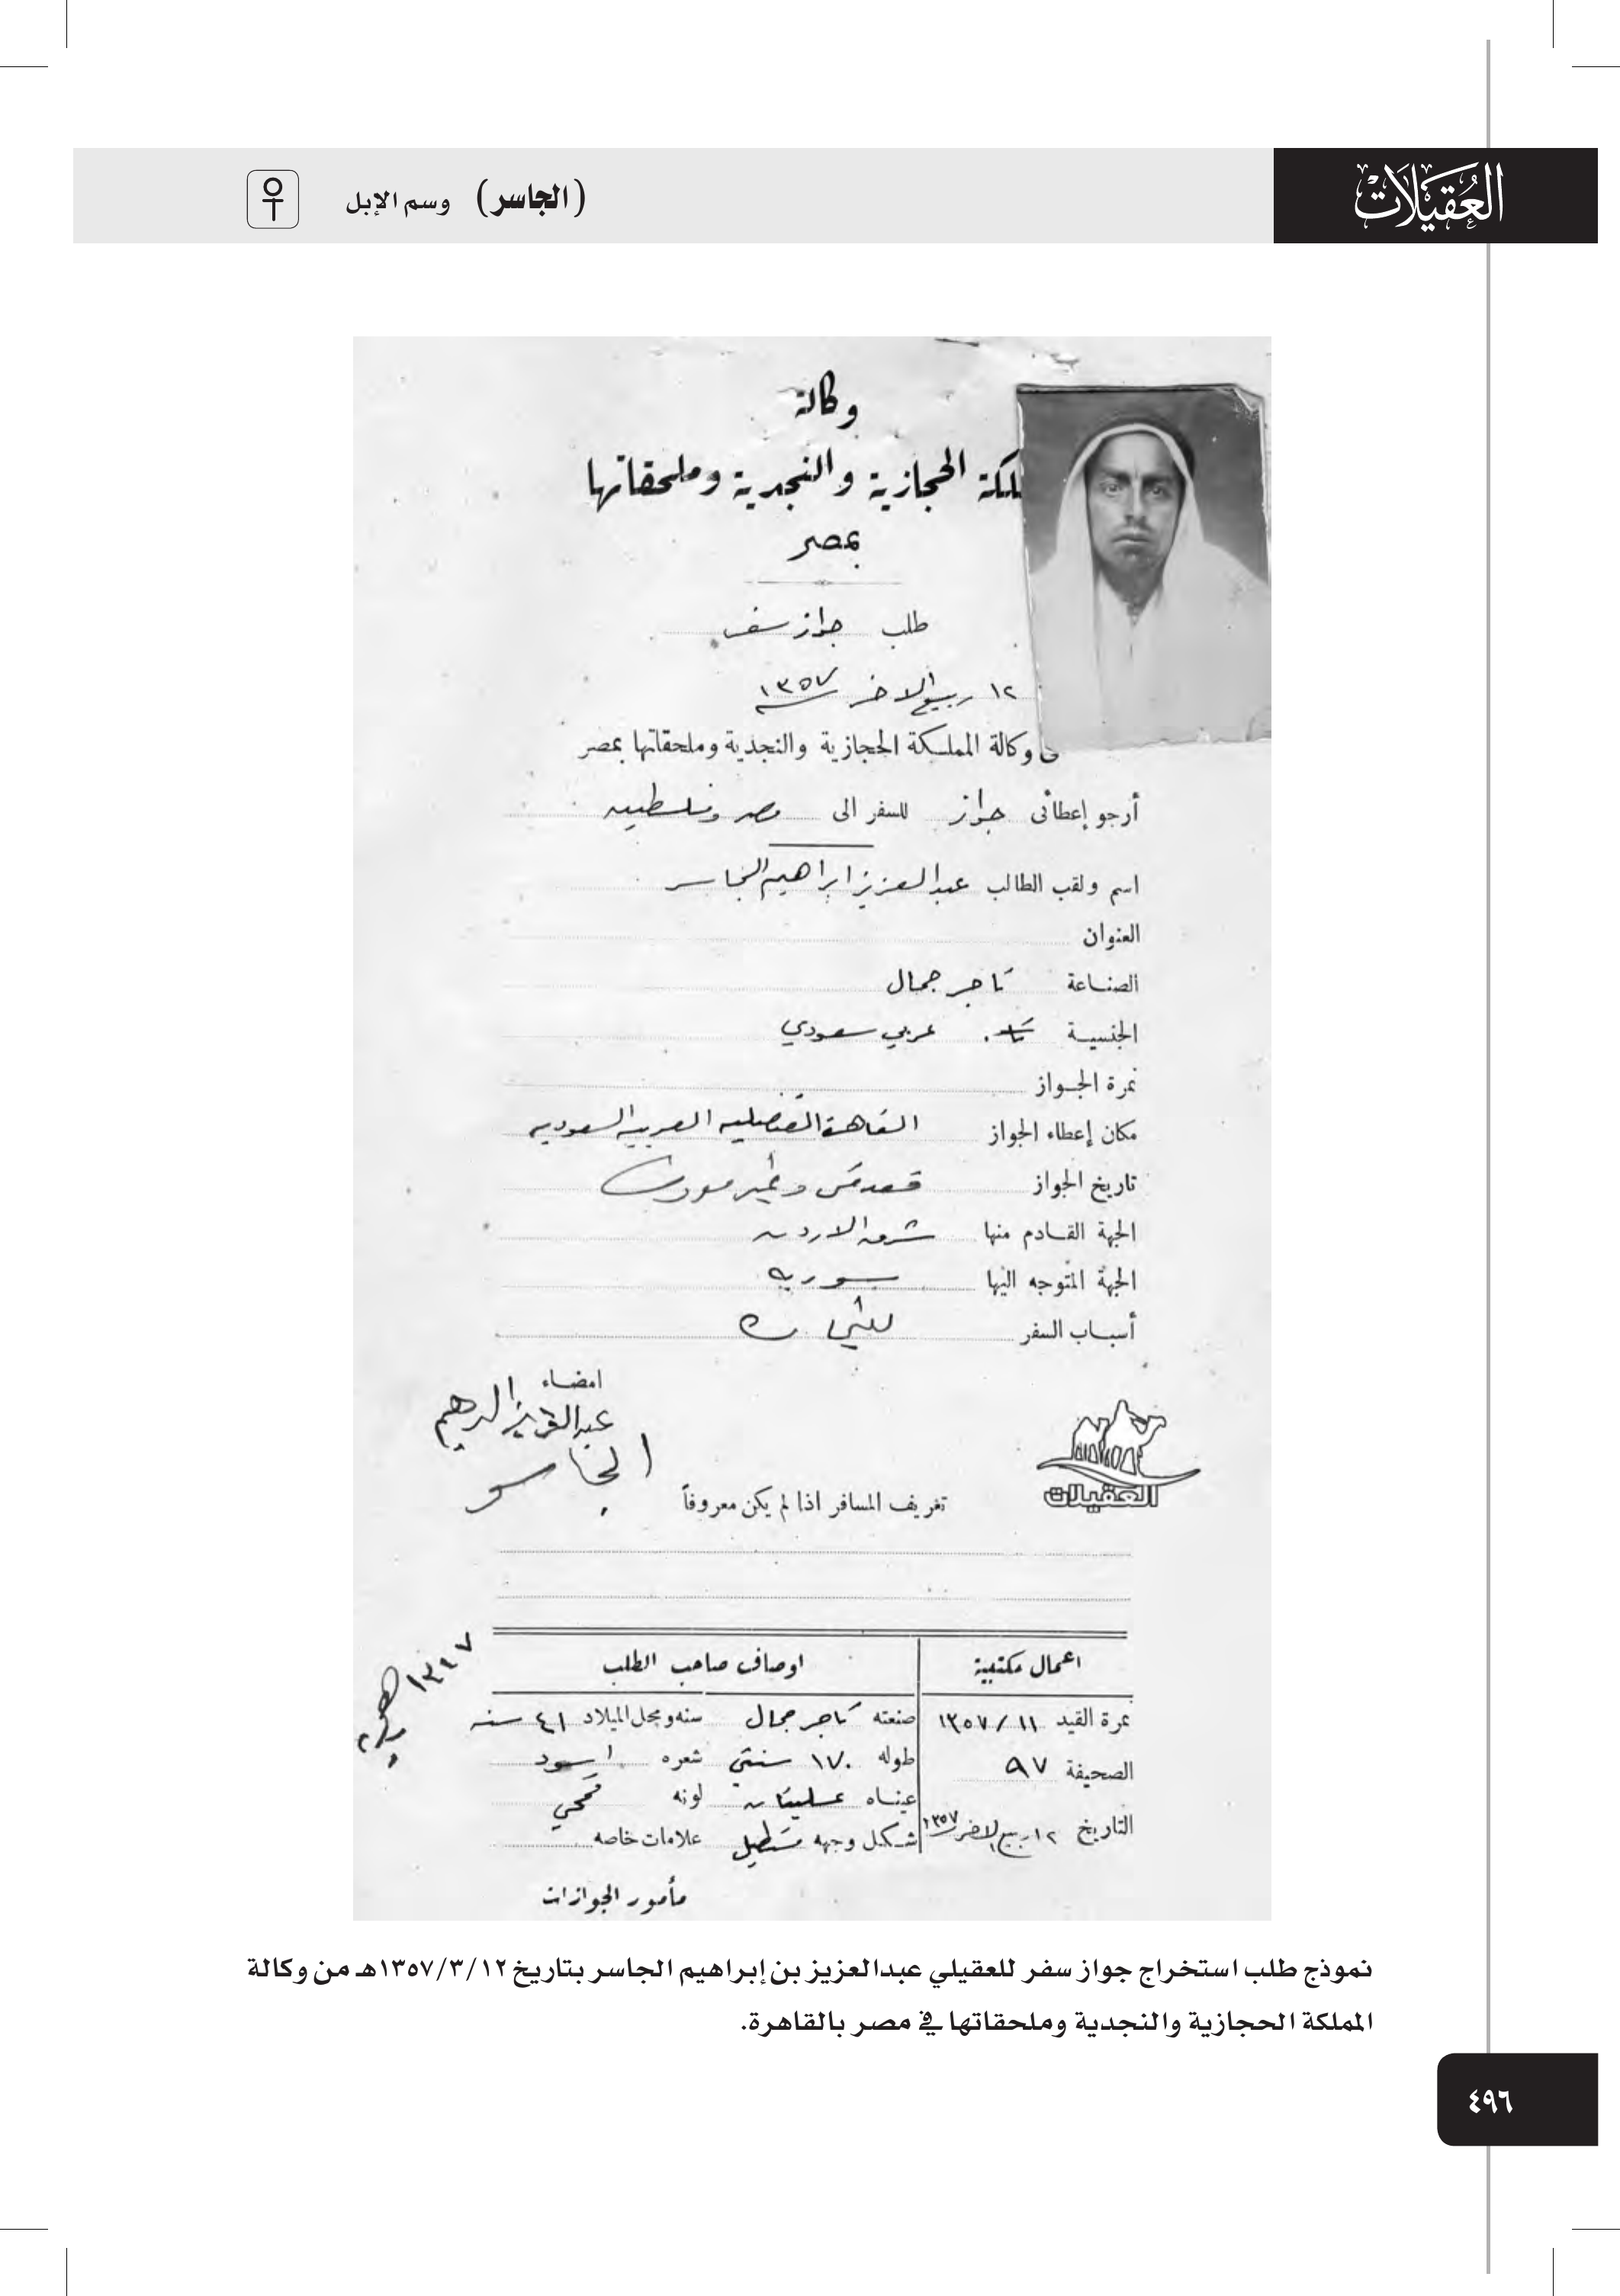 العُقَيْلَاتْ
(الجاسر) وسم الإبل
وكالة
لمكة الحجازية والنجدية وملحقاتها
بمصر
طلب جواز سفر
١٢ ربيع الاخر ١٣٥٧
وكالة المملكة الحجازية والنجدية وملحقاتها بمصر
أرجو إعطائى جواز للسفر الى مصر وفلسطين
اسم ولقب الطالب عبدالعزيز ابراهيم الجاسر
العنوان
الصناعة تاجر جمال
الجنسية عربي سعودي
نمرة الجواز
مكان إعطاء الجواز القاهرة القنصليه العربيه السعوديه
تاريخ الجواز
الجهة القادم منها شرق الاردن
الجهة المتوجه اليها سوريه
أسباب السفر
امضاء
عبدالعزيز ابرهيم
الجاسر
العقيلات
تعريف المسافر اذا لم يكن معروفاً
اعمال مكتبية
اوصاف صاحب الطلب
نمرة القيد ١١ / ١٣٥٧ صنعته تاجر جمال سنه ومحل الميلاد ٤١ سنه
الصحيفة ٩٧ طوله ١٧٠ سنتي شعره اسود
عيناه عسليتان لونه قمحي
التاريخ ١٢ ربيع الاخر ١٣٥٧ شكل وجهه مستطيل علامات خاصه
مأمور الجوازات
نموذج طلب استخراج جواز سفر للعقيلي عبدالعزيز بن إبراهيم الجاسر بتاريخ ١٣٥٧/٣/١٢هـ من وكالة
المملكة الحجازية والنجدية وملحقاتها في مصر بالقاهرة.
٤٩٦